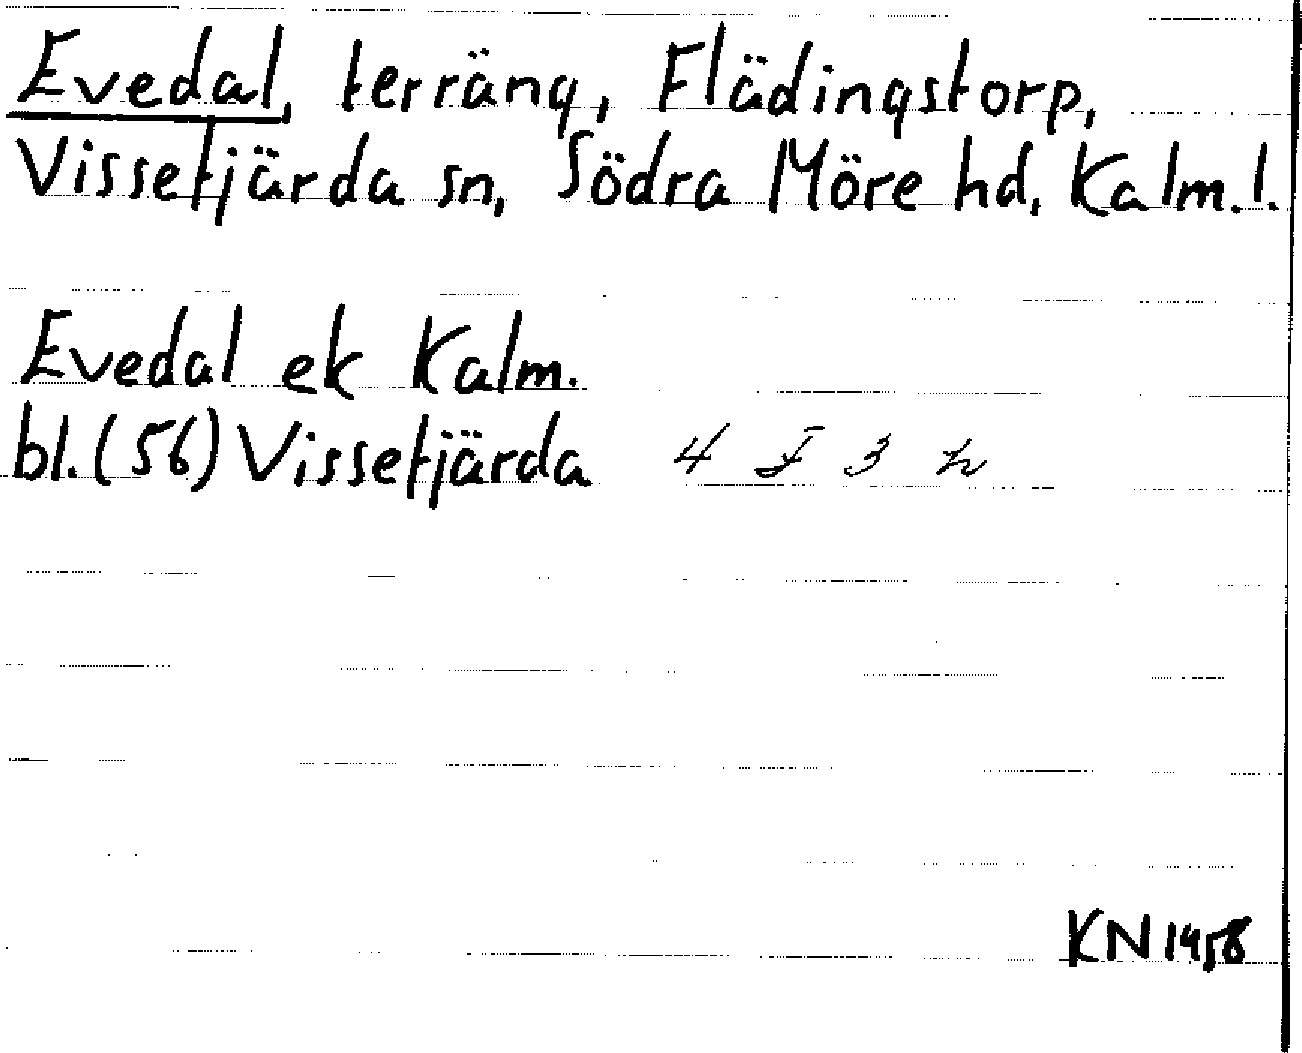 Evedal, terräng, Flädingstorp,
Vissefjärda sn, Södra Möre hd, Kalm. l.
Evedal ek Kalm.
bl. (56) Vissefjärda 4 F 3 h
KN 1958